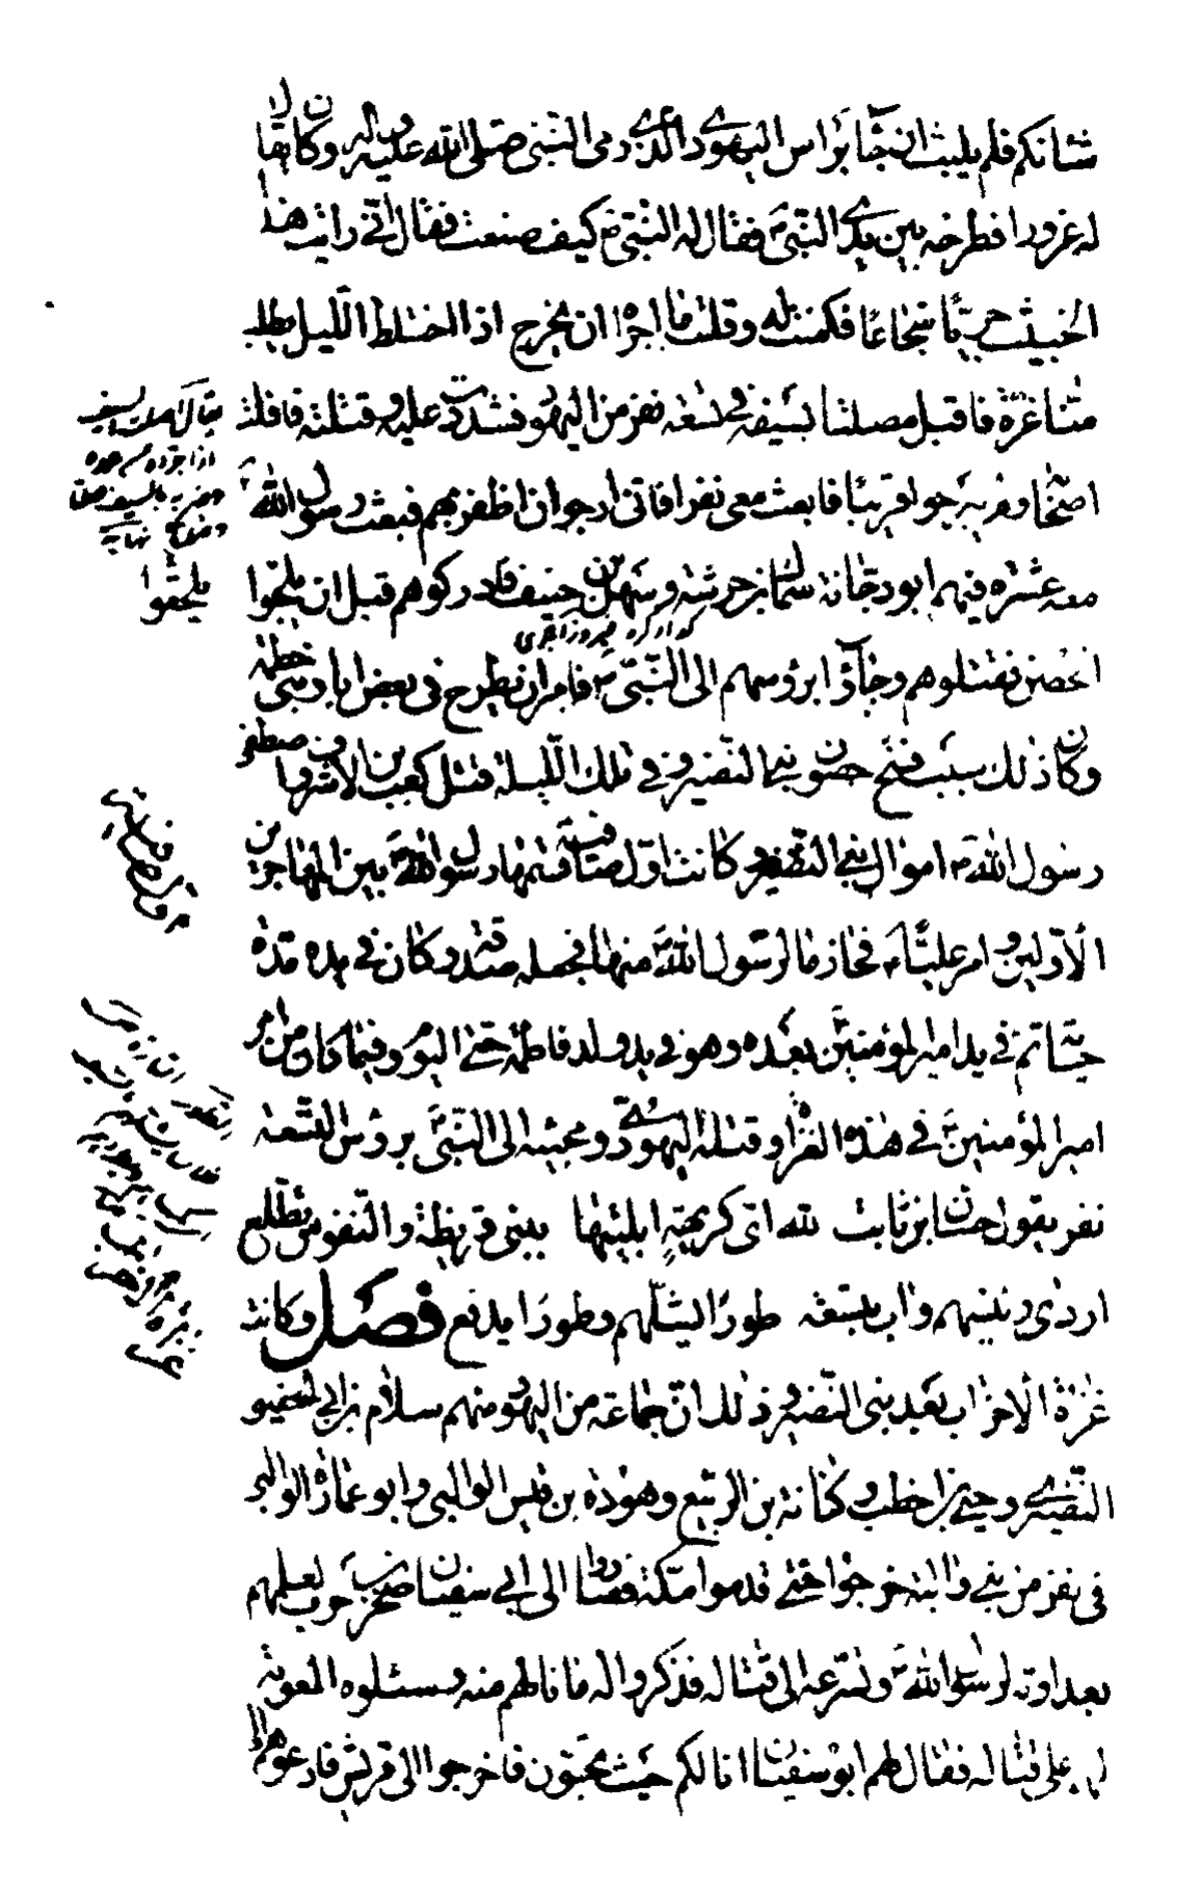 شانكم فلم يلبث ان جاء براس اليهودي الذي رمى النبي صلى الله عليه واله وكان يقال
له غرورا فطرحه بين يدي النبي ص فقال له النبي ص كيف صنعت فقال اني رايت هذا
الخبيث جريّا شجاعا فكمنت له وقلت ما اجراه ان يخرج اذا اختلط الليل يطلب
منا غرّة فاقبل مصلتا بسيفه في تسعه نفر من اليهود فشددت عليه وقتلته فافلت
اصحابه ولم يبرحوا قريبا فابعث معي نفرا فاني ارجو ان اظفر بهم فبعث رسول الله ص
معه عشرة فيهم ابو دجانة سماك بن خرشة وسهل بن حنيف فادركوهم قبل ان يلجوا
الحصن فقتلوهم وجاؤا برؤسهم الى النبي ص فامر ان تطرح في بعض ابار بني خطمة
وكان ذلك سبب فتح حصون بني النضير وفي تلك الليلة قتل كعب بن الاشرف واصطفى
رسول الله ص اموال بني النضير وكانت اول صافية قسمها رسول الله ص بين المهاجرين
الاولين وامر عليّا ع فحاز ما لرسول الله ص منها فجعله صدقة وكان في يده مدة
حياته ثم في يد امير المؤمنين بعده وهو في يد ولد فاطمة حتى اليوم وفيما كان من امر
امير المؤمنين ع في هذه الغزاة وقتله اليهودي ومجيئه الى النبي ص برؤس التسعة
نفر يقول حسان بن ثابت لله اي كريهة ابليتها ببني قريظة والنفوس تطلع
اردى رئيسهم واب بتسعة طورا يشلّهم وطورا يدفع فصل وكانت
غزاة الاحزاب بعد بني النضير وذلك ان جماعة من اليهود منهم سلام بن ابي الحقيق
النضيري وحيي بن اخطب وكنانة بن الربيع وهوذة بن قيس الوالبي وابو عمارة الوالبي
في نفر من بني والبة خرجوا حتى قدموا مكة فصاروا الى ابي سفيان صخر بن حرب لعلمهم
بعداوته لرسول الله ص وتسرعه الى قتاله فذكروا له ما نالهم منه وسئلوه المعونة
لهم على قتاله فقال لهم ابو سفيان انا لكم حيث تحبون فاخرجوا الى قريش فادعوهم الى
يقال اصلت السيف
اذا جرده من غمده
وضربه بالسيف صلتا
نهاية
يلحقوا